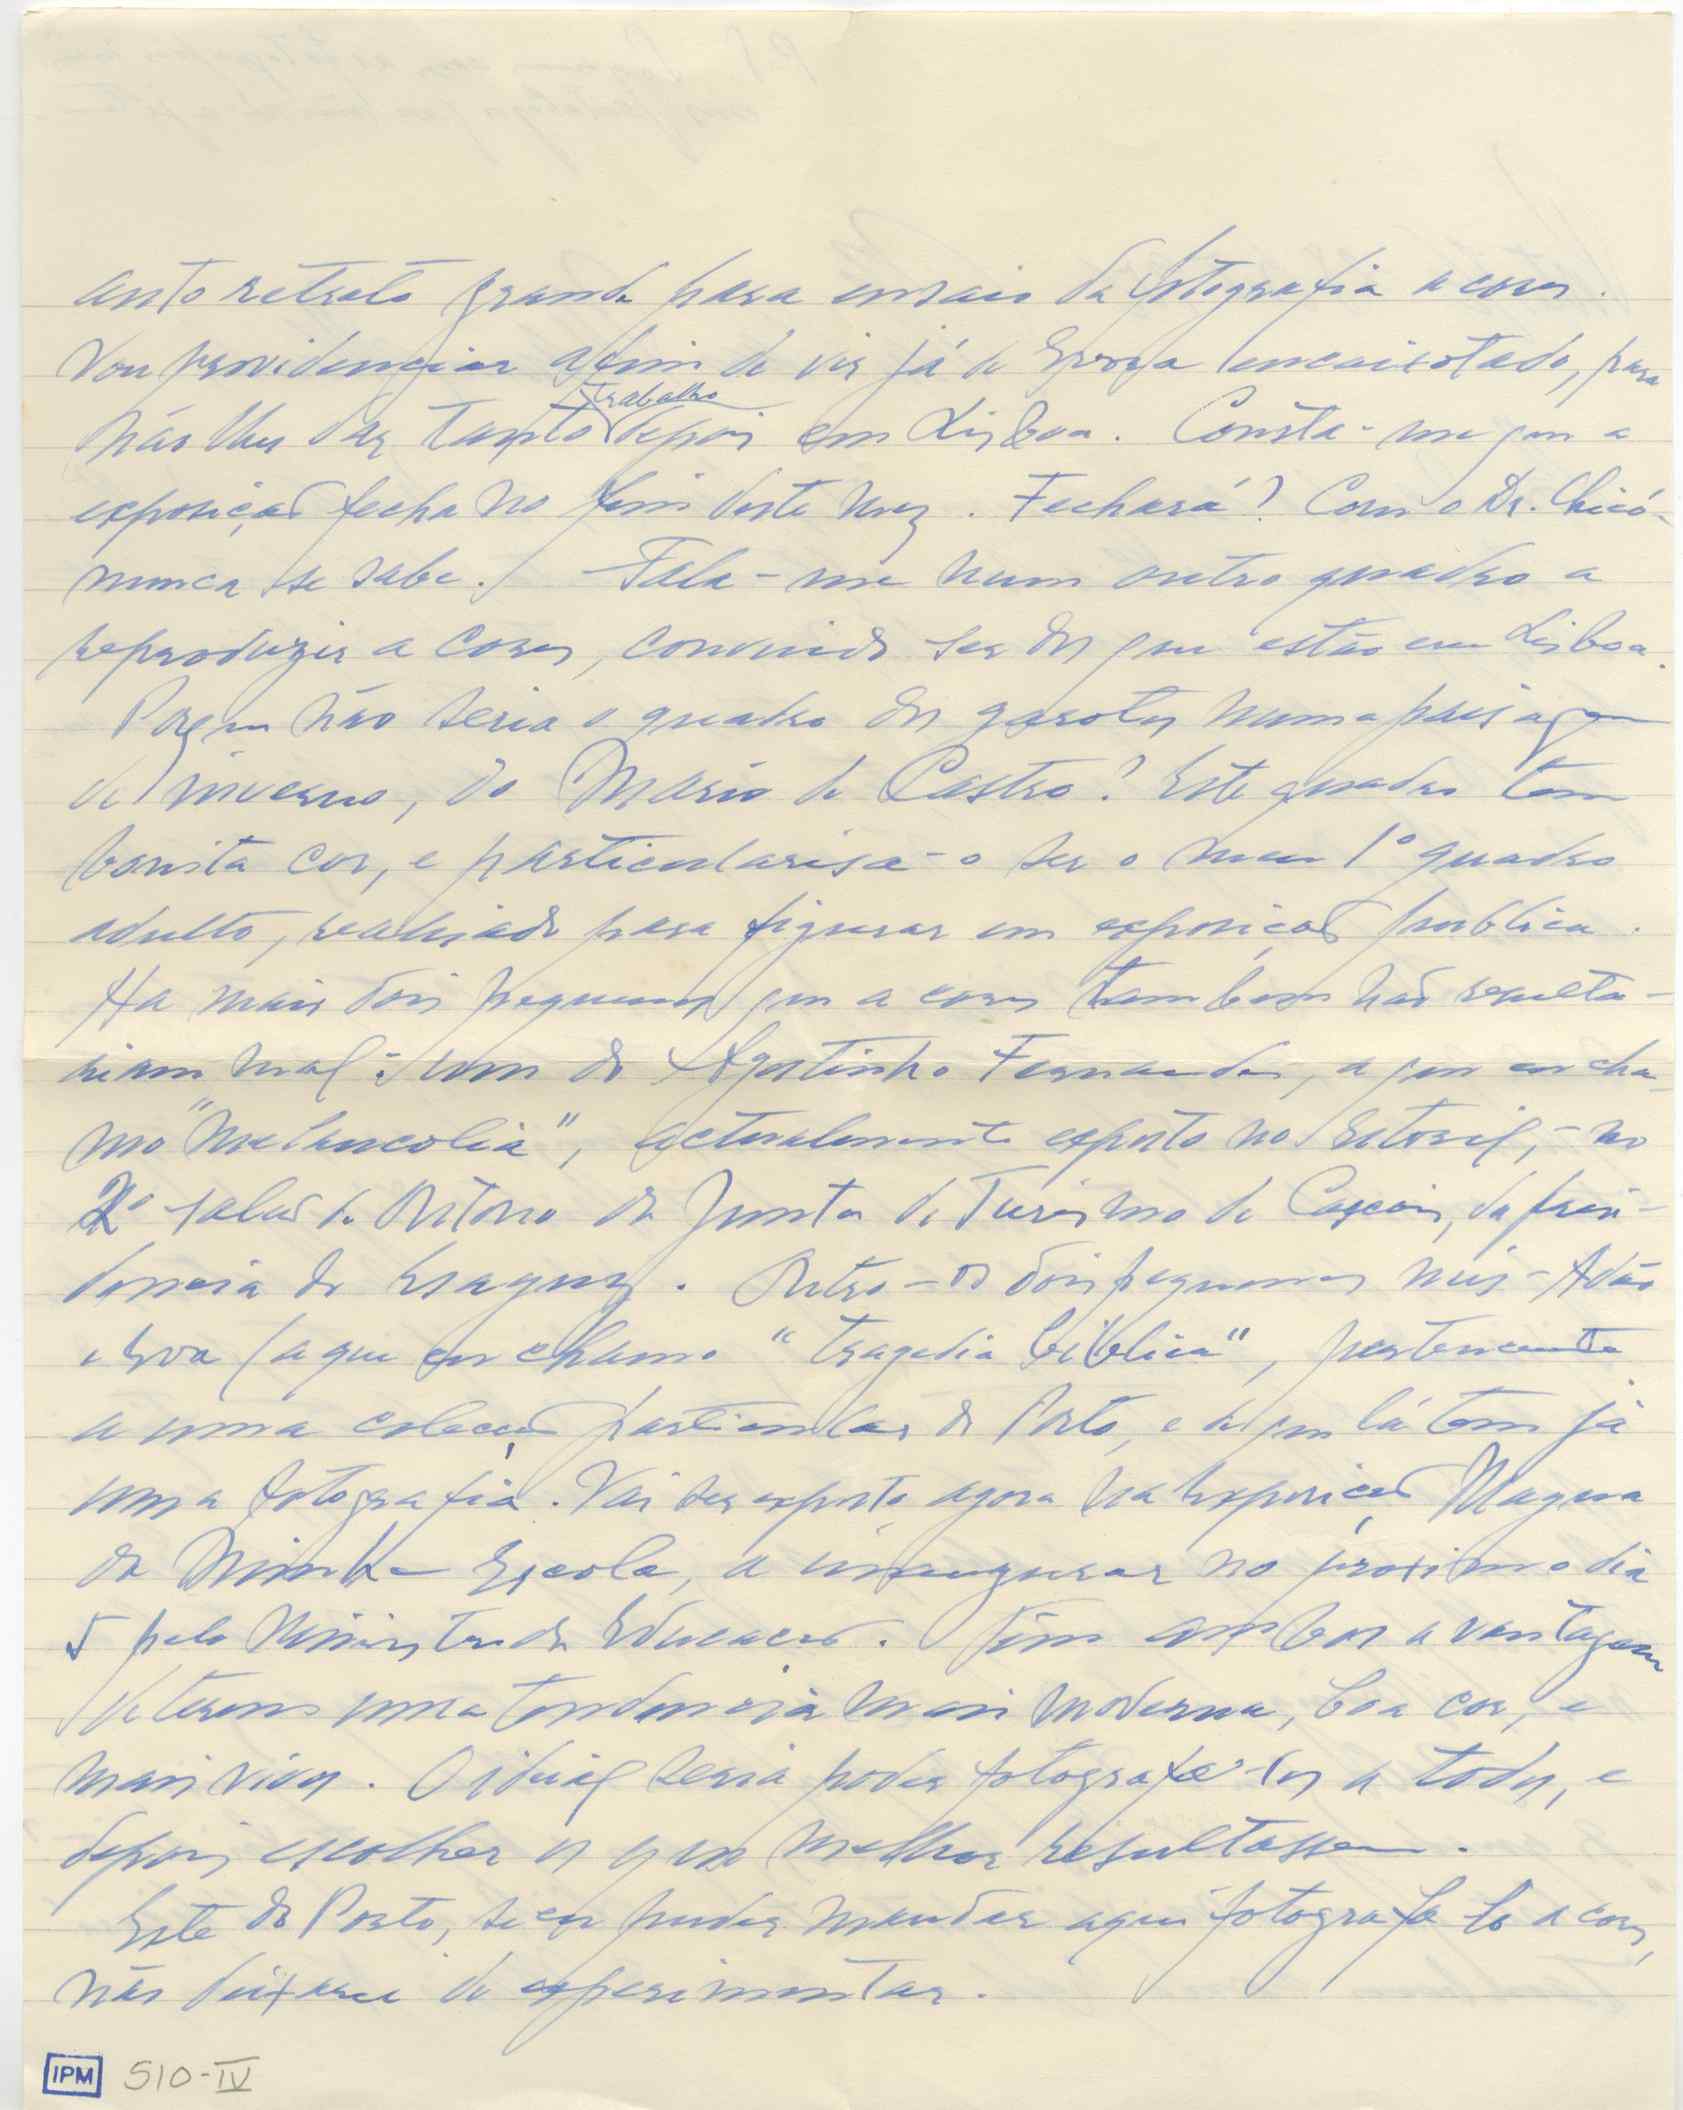 auto retrato grande para ensaio da fotografia a cores.
Vou providenciar afim de vir já de Evora encaixotado, para
não lhes dar tanto trabalho depois em Lisboa. Consta-me que a
exposição fecha no fim deste mez. Fechará? Com o Dr. Chicó
nunca se sabe. Fala-me num outro quadro a
reproduzir a cores, convindo ser dos que estão em Lisboa.
Porque não seria o quadro dos garotos numa paisagem
de inverno, do Mário de Castro? Este quadro tem
bonita cor, e particularisa-o ser o meu 1º quadro
adulto, realisado para figurar em exposição publica.
Ha mais dois pequenos que a cores tambem não resulta-
riam mal: um do Agostinho Fernandes, a que eu cha-
mo "Melancolia", actualmente exposto no Estoril, - no
2º salão de Outono da Junta de Turismo de Cascais, da presi-
dencia do . Outro - os dois pequenos nús - Adão
e Eva (a que eu chamo "tragedia biblica", pertencente
a uma colecção particular do Porto, e de que lá tem já
uma fotografia. Vai ser exposto agora na Exposição Magna
da Minha Escola, a inaugurar no próximo dia
5 pelo Ministro da Educação. Têm ambos a vantagem
de terem uma tendencia mais moderna, boa cor, e
mais vivos. O ideial seria poder fotografá-los a todos, e
depois escolher os que melhor resultassem.
Este do Porto, se eu puder mandar aqui fotografa-lo a cores,
não deixarei de experimentar.
IPM 510-IV